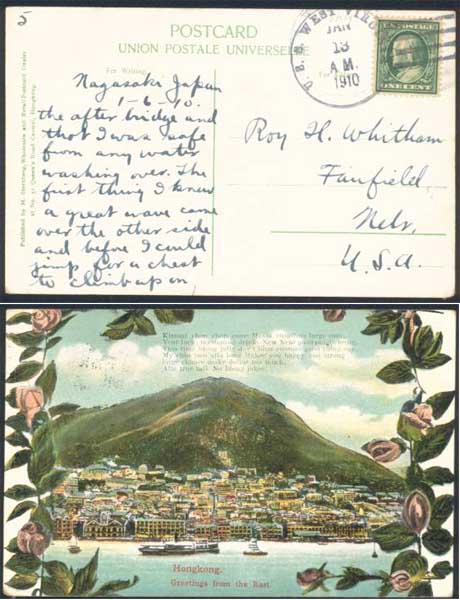 5
POSTCARD
UNION POSTALE UNIVERSELLE
For Writing.
U.S.S. WEST VIRG
JAN
13
A.M.
1910
U.S. POSTAGE
ONE CENT
Nagasaki Japan
1-6-10.
the after bridge and
thot I was safe
from any water
washing over. The
first thing I knew
a great wave came
over the other side
and before I could
jump for a chest
to climb up on
Roy H. Whitham
Fairfield,
Nebr,
U.S.A.
Published by M. Sternberg, Wholesale and Retail Postcard Dealer
51 Queen's Road Central, Hongkong.
Hongkong.
Greetings from the East.